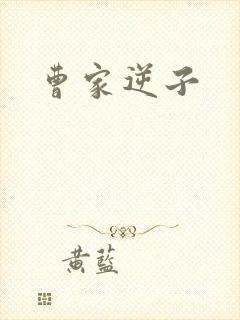 曹家逆子
黄蓝